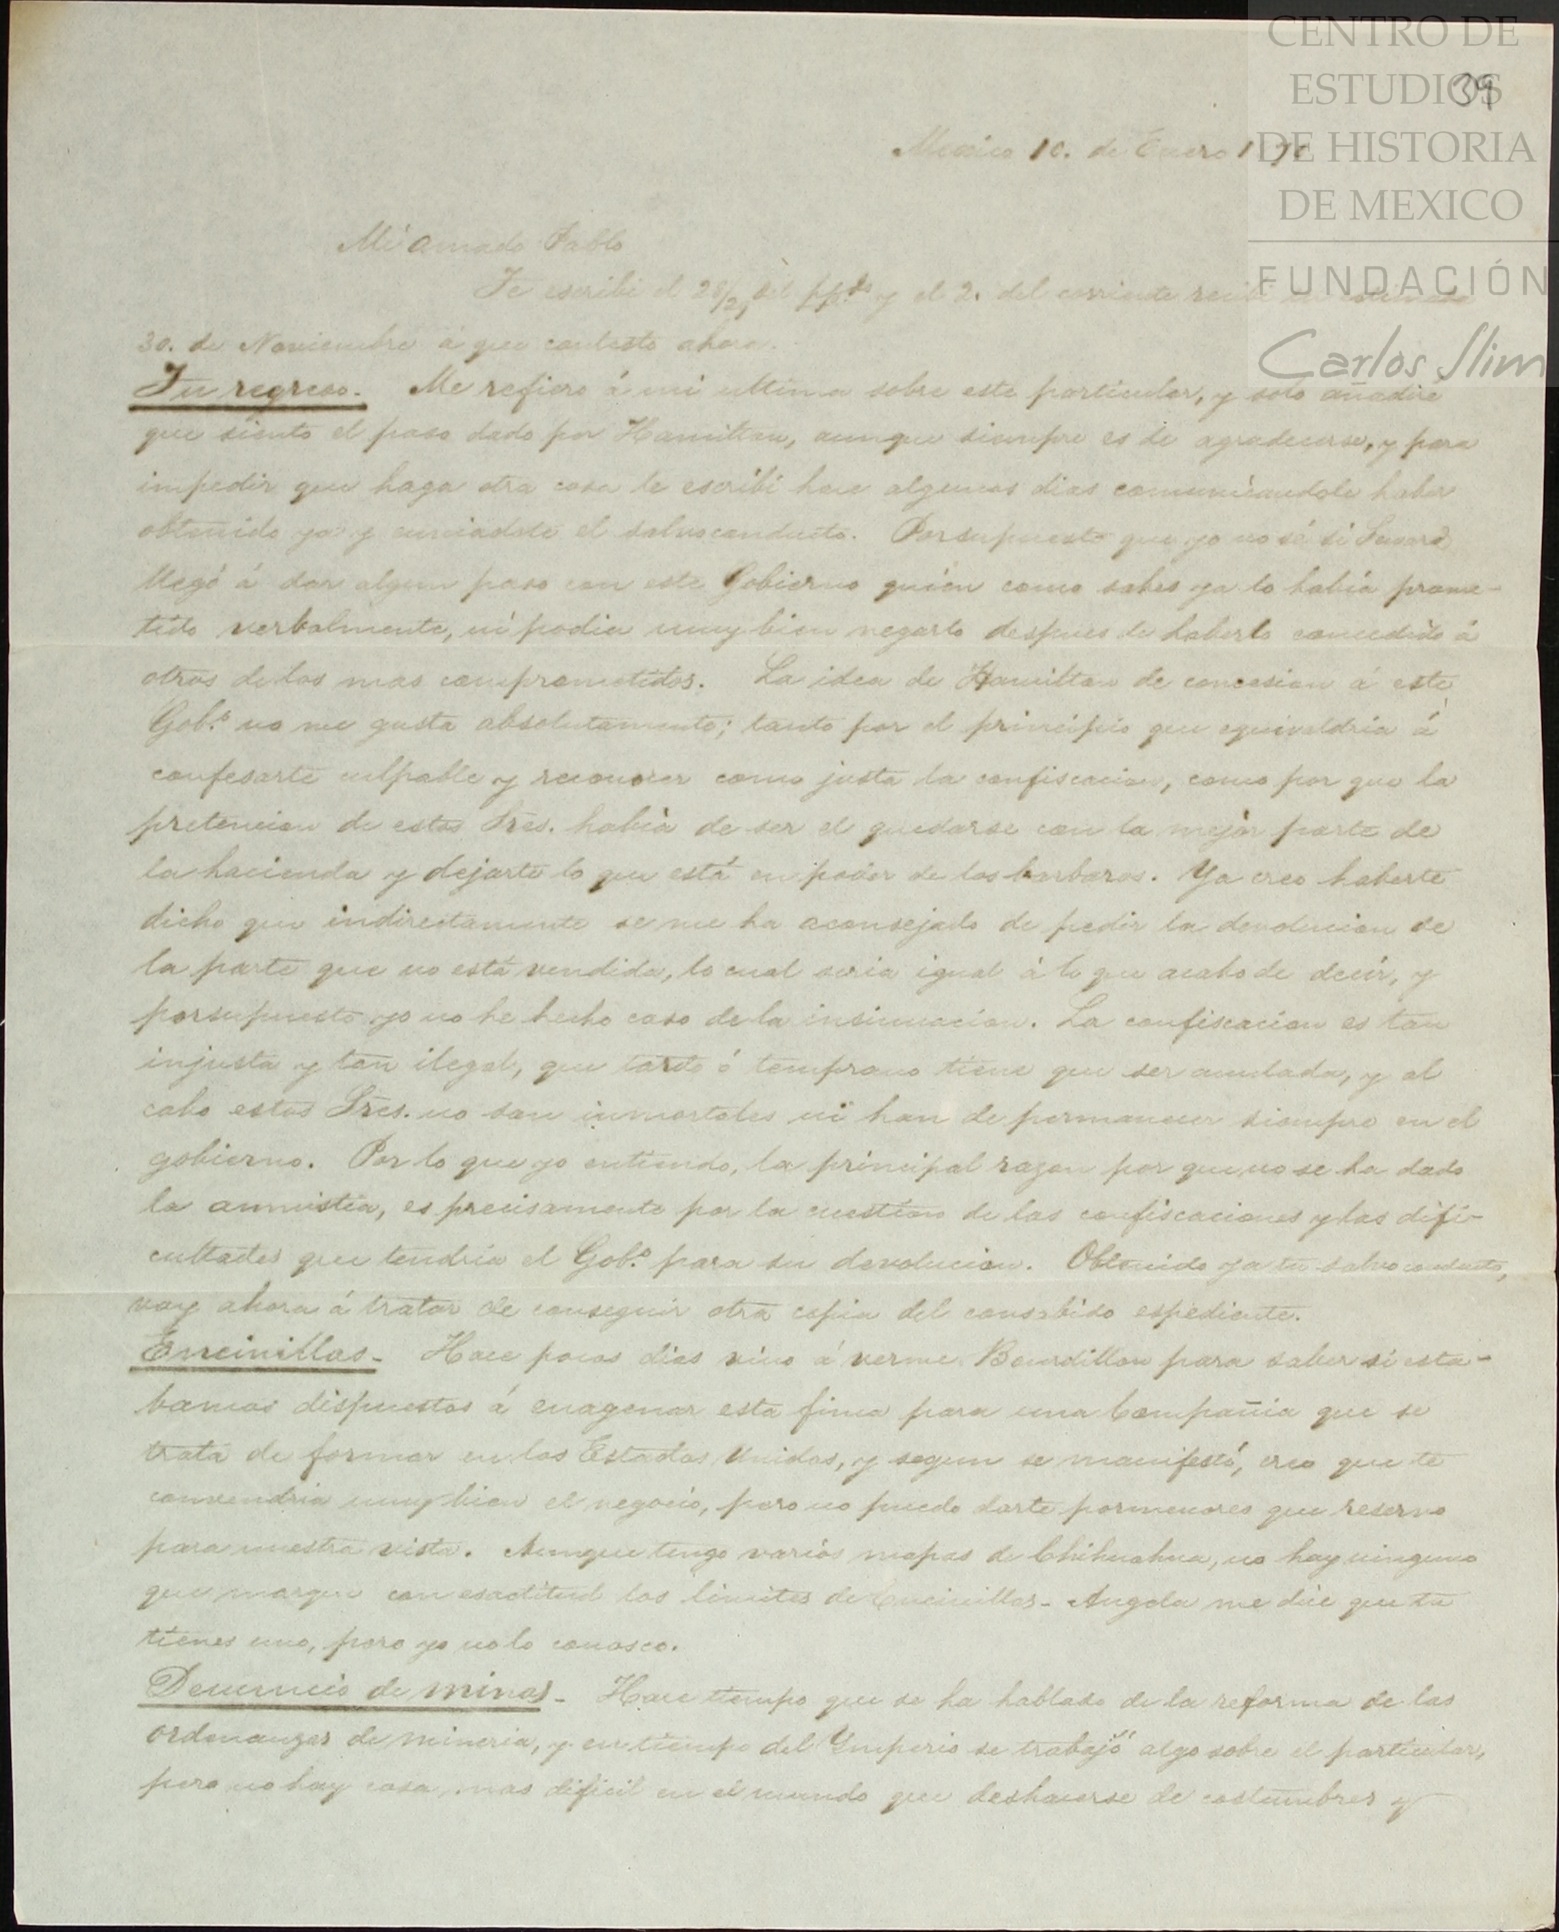 CENTRO DE
ESTUDIOS
DE HISTORIA
DE MEXICO
FUNDACIÓN
Carlos Slim
39
Mexico 10. de Enero
Mi amado Pablo
Te escribi el 28/2, del pp.do y el 2. del corriente recibi tu estimada
30. de Noviembre á que contesto ahora.
Tu regreso. Me refiero á mi ultima sobre este particular, y solo añadiré
que siento el paso dado por Hamilton, aunque siempre es de agradecerse, y para
impedir que haga otra cosa le escribí hace algunos dias comunicandole haber
obtenido ya y enviadote el salvoconducto. Porsupuesto que yo no sé si
llegó á dar algun paso con este Gobierno quién como sabes ya lo había prome-
tido verbalmente, ni podia muy bien negarlo despues de haberlo concedido á
otros de los mas comprometidos. La idea de Hamilton de concesion á este
Gob.o no me gusta absolutamente; tanto por el principio que equivaldria á
confesarte culpable y reconocer como justa la confiscacion, como por que la
pretencion de estos Sres. había de ser el quedarse con la mejor parte de
la hacienda y dejarte lo que está en poder de los barbaros. Ya creo haberte
dicho que indirectamente se me ha aconsejado de pedir la devolucion de
la parte que no está vendida, lo cual seria igual á lo que acabo de decir, y
porsupuesto yo no he hecho caso de la insinuacion. La confiscacion es tan
injusta y tan ilegal, que tarde ó temprano tiene que ser anulada, y al
cabo estos Sres. no son inmortales ni han de permanecer siempre en el
gobierno. Por lo que yo entiendo, la principal razon por que no se ha dado
la amnistia, es precisamente por la cuestion de las confiscaciones y las difi-
cultades que tendria el Gob.o para su devolucion. Obtenido ya tu salvoconducto,
voy ahora á tratar de conseguir otra copia del consabido espediente.
Encinillas- Hace pocos dias vino á verme Bourdillon para saber si esta-
bamos dispuestos á enagenar esta finca para una Compañia que se
trata de formar en los Estados Unidos, y segun se manifestó, creo que te
convendria muy bien el negocio, pero no puedo darte pormenores que reservo
para nuestra vista. Aunque tengo varios mapas de Chihuahua, no hay ninguno
que marque con esactitud los limites de Encinillas- Angela me dice que tu
tienes uno, pero yo no lo conosco.
Denuncio de minas- Hace tiempo que se ha hablado de la reforma de las
ordenanzas de mineria, y en tiempo del Ymperio se trabajó algo sobre el particular,
pero no hay cosa mas dificil en el mundo que deshacerse de costumbres y